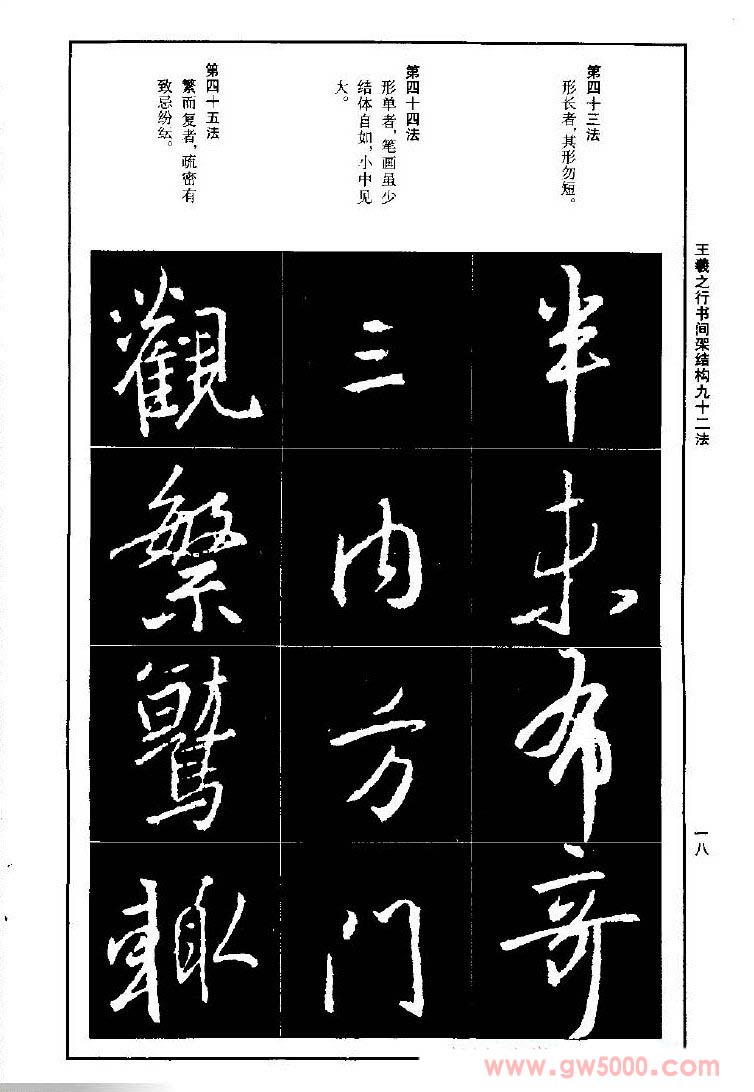 王羲之行书间架结构九十二法
一八
第四十三法
形长者，其形勿短。
半
布
奇
第四十四法
形单者，笔画虽少
结体自如，小中见
大。
三
内
方
门
第四十五法
繁而复者，疏密有
致忌纷纭。
觀
繁
www.gw5000.com